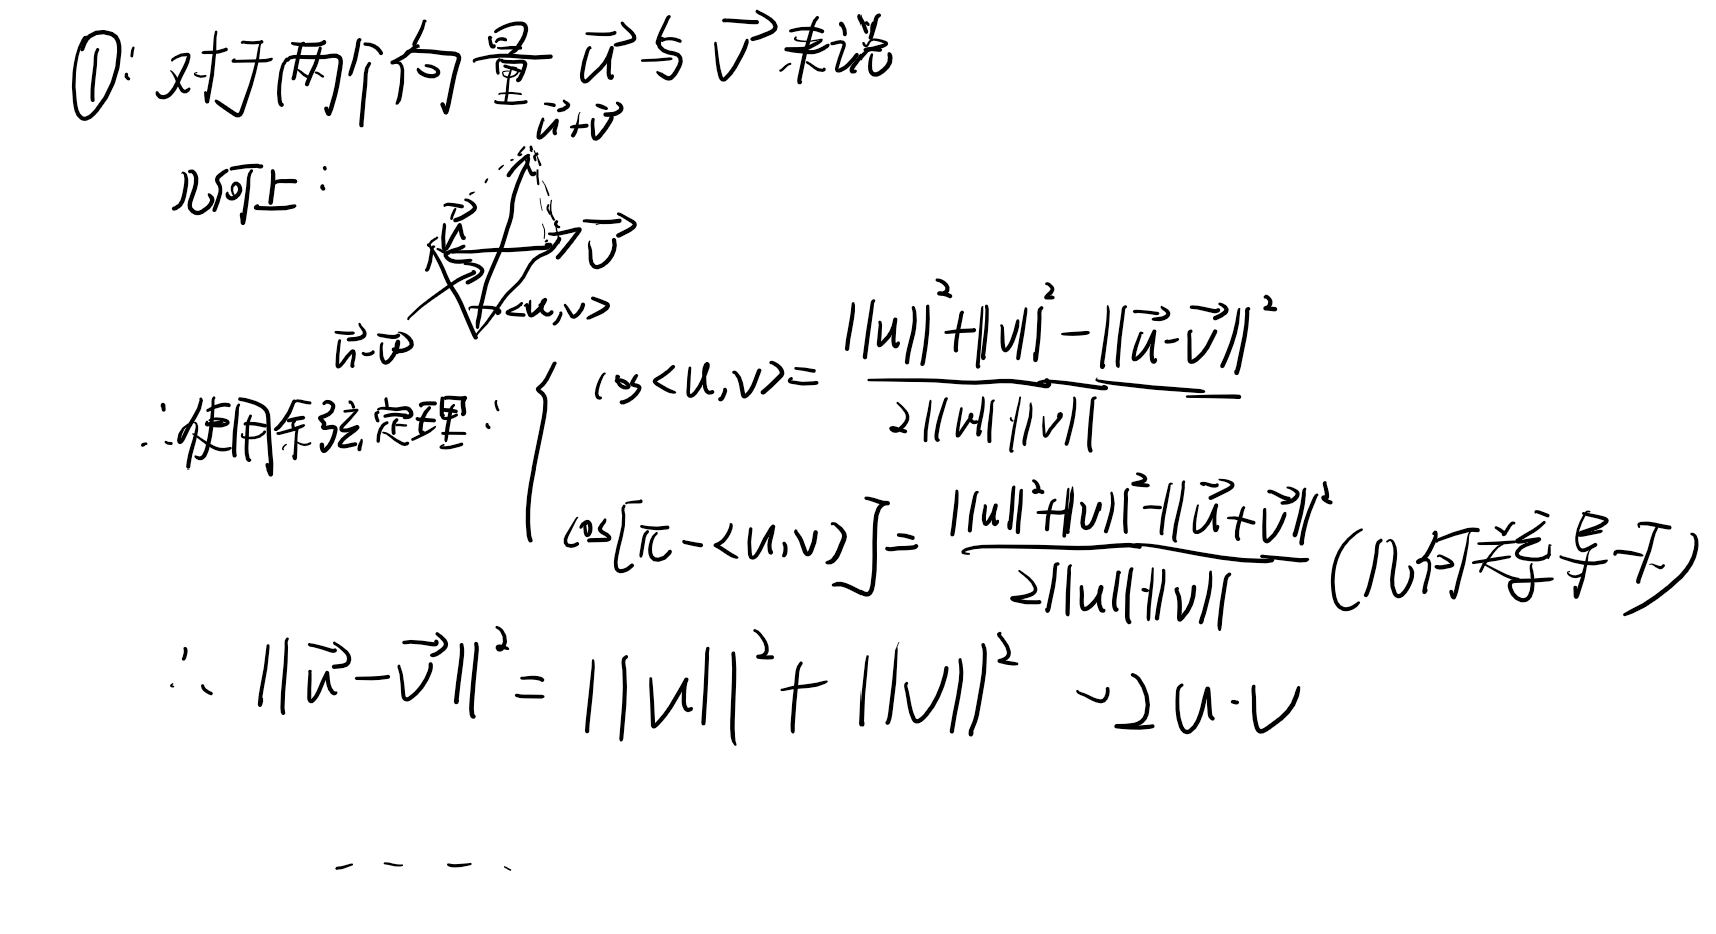 ①: 对于两个向量 u⃗ 与 v⃗ 来说
u⃗+v⃗
几何上:
u⃗
v⃗
<u,v>
u⃗-v⃗
∴使用余弦定理: cos<u,v>= (||u||²+||v||²-||u⃗-v⃗||²) / (2||u||·||v||)
cos[π-<u,v>]= (||u||²+||v||²-||u⃗+v⃗||²) / (2||u||·||v||) (几何关系导一下)
∴ ||u⃗-v⃗||² = ||u||² + ||v||² -2u·v
- - - -